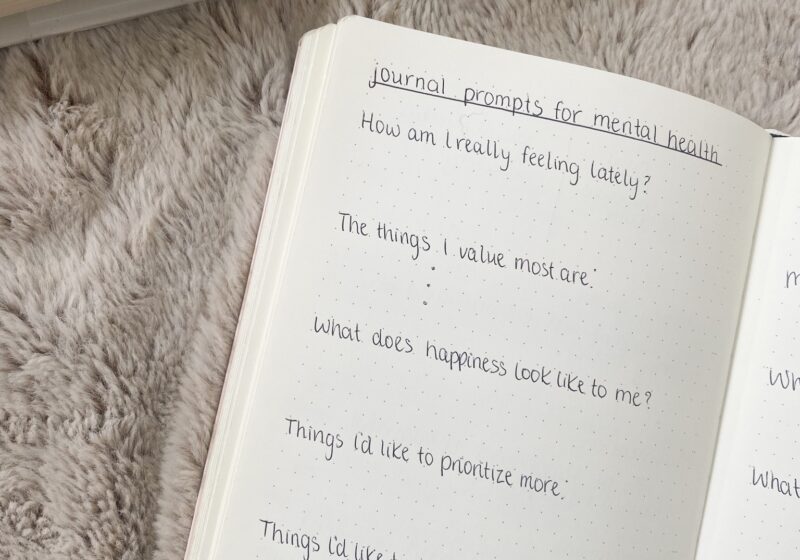 journal prompts for mental health
How am I really feeling lately?
The things I value most are:
What does happiness look like to me?
Things I'd like to prioritize more:
Things I'd like
What